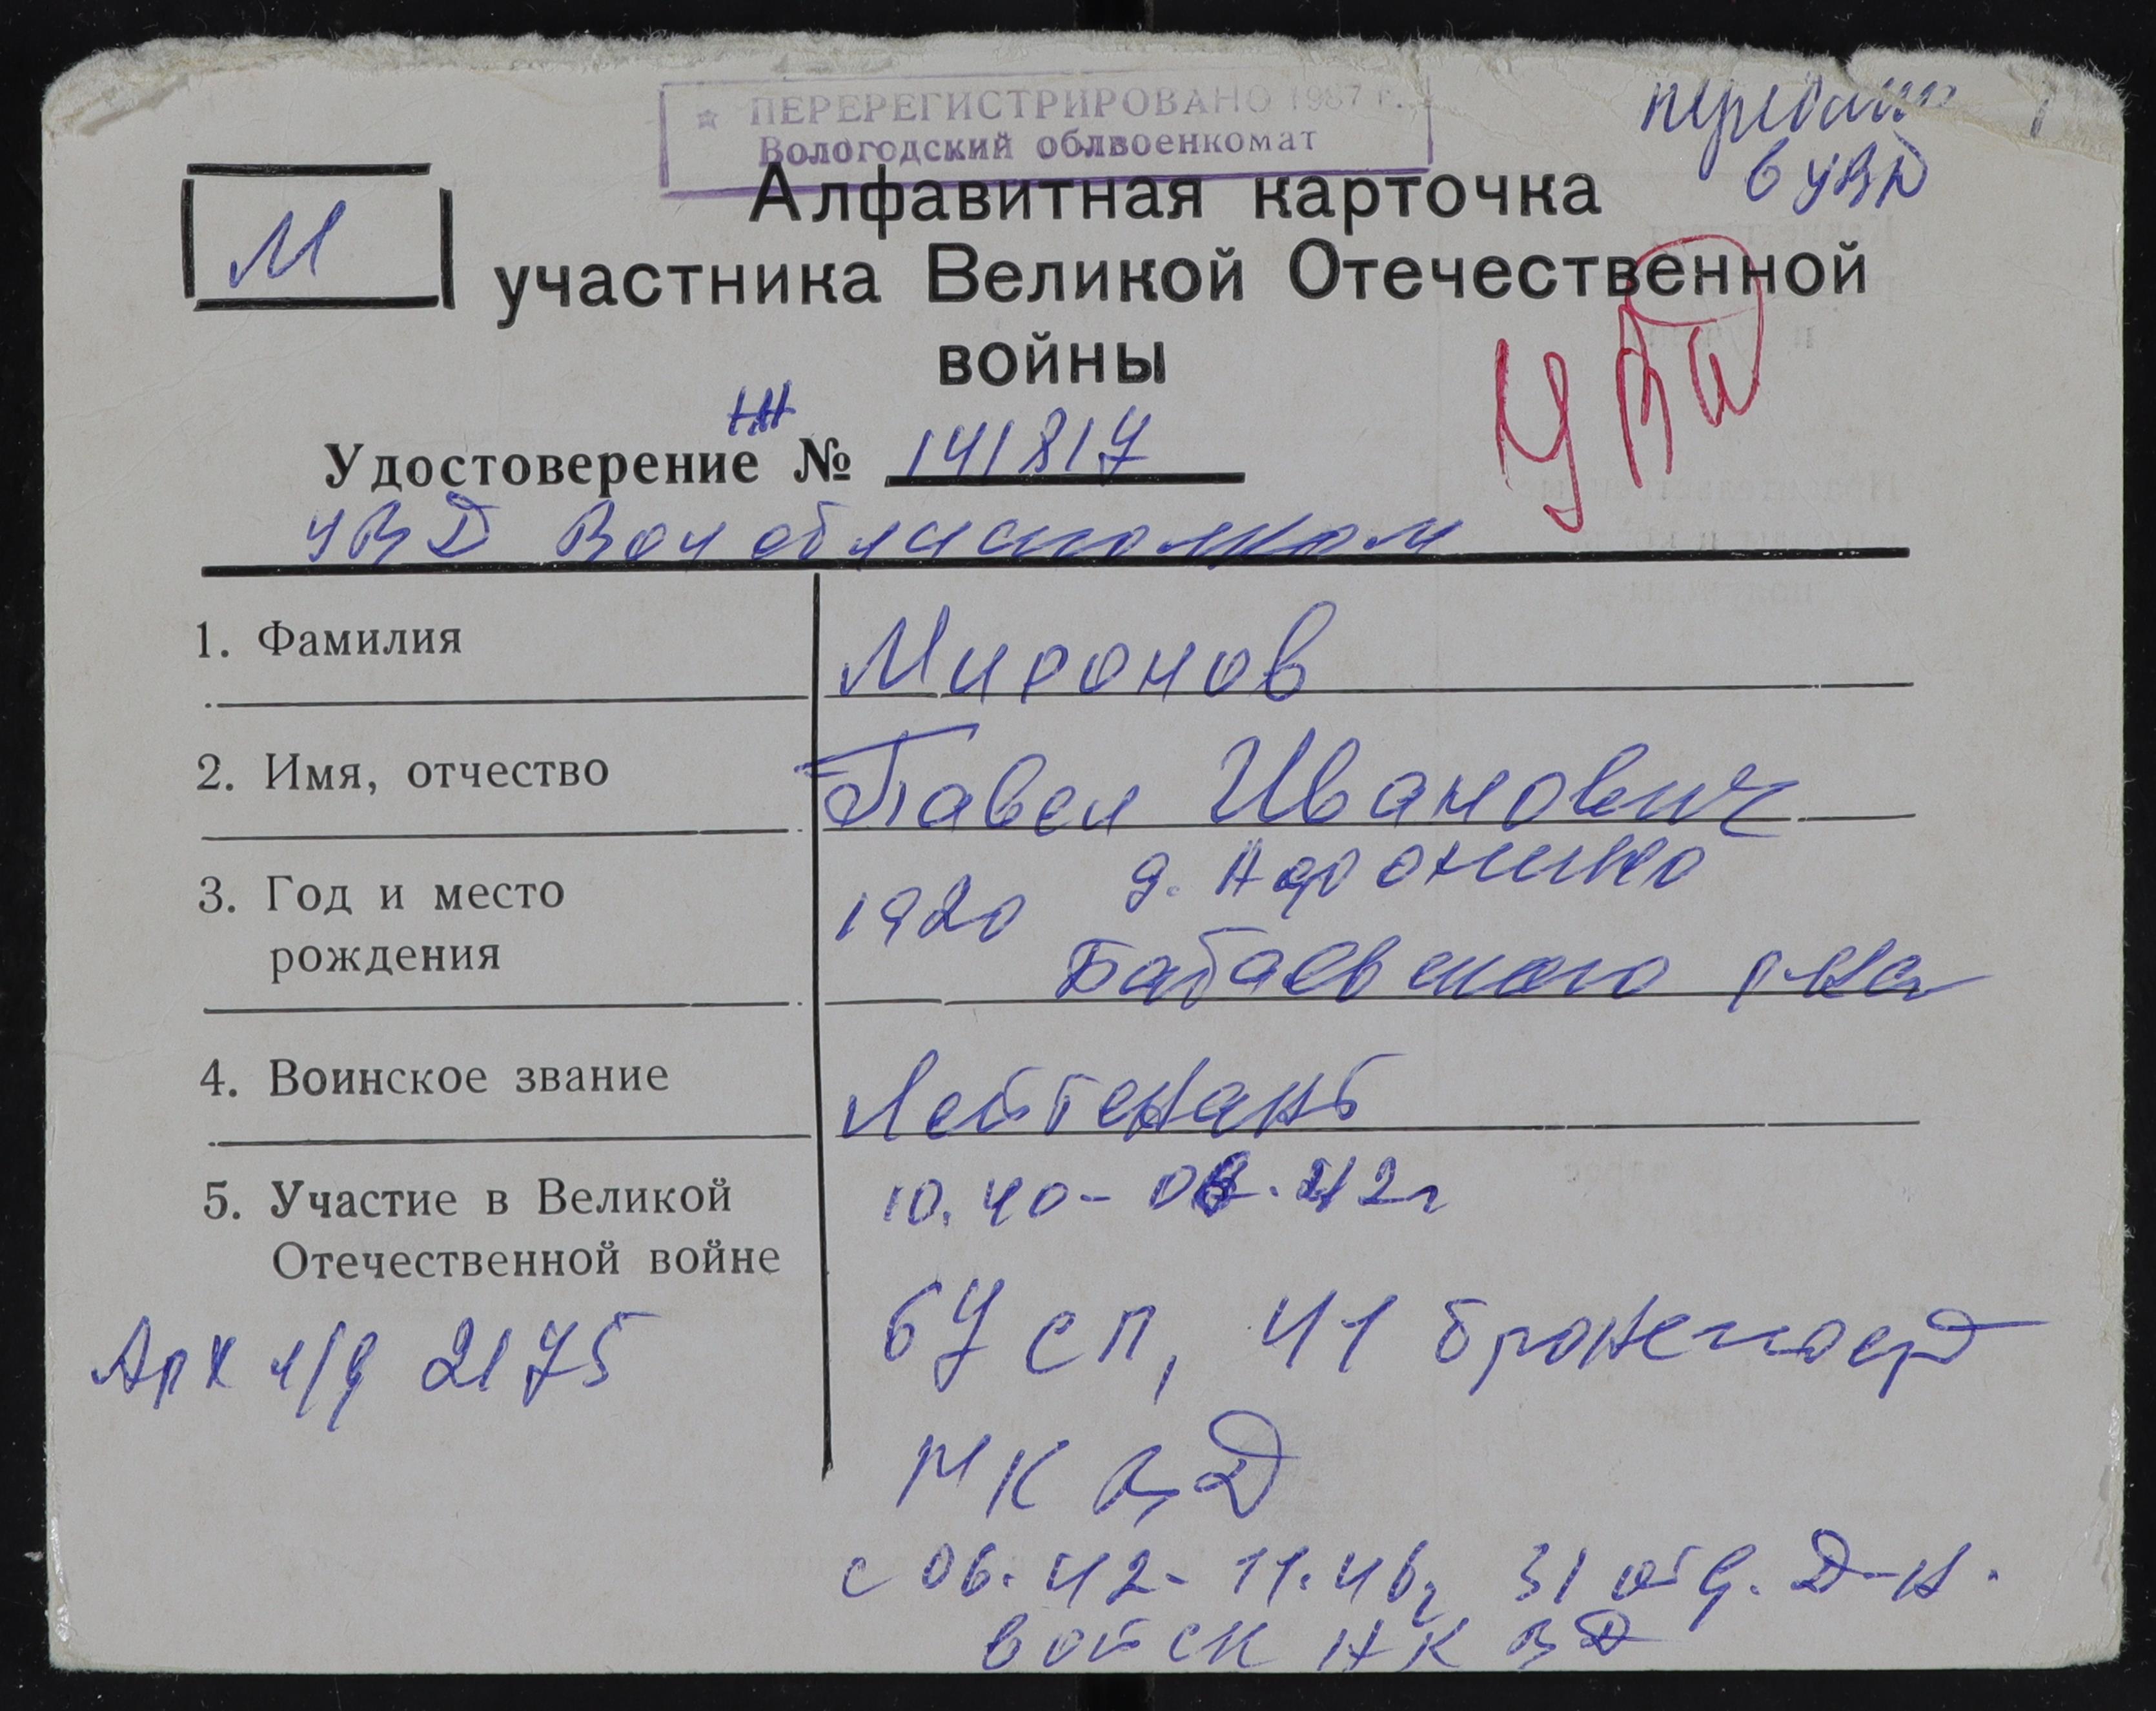 ПЕРЕРЕГИСТРИРОВАНО 1987 г.
Вологодский облвоенкомат
передано
в УВД
М
Алфавитная карточка
участника Великой Отечественной
войны
УВД
Удостоверение № 141817
УВД Вологблисполком
1. Фамилия Миронов
2. Имя, отчество Павел Иванович
3. Год и место
рождения
1920 д. Афонино
Бабаевского р-на
4. Воинское звание Лейтенант
5. Участие в Великой
Отечественной войне
10.40-06.42г
67 сп, 41 бронепоезд
НКВД
с 06.42-11.46, 31 отд. д-н.
войск НКВД
Арх л/д 2175